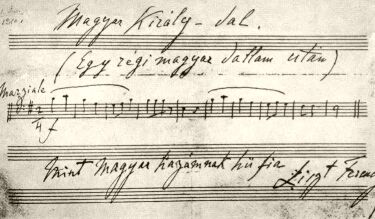 Magyar Király-dal.
(Egy régi magyar dallam után)
Marziale
f
Mint Magyar hazámnak hű fia
Liszt Ferenc